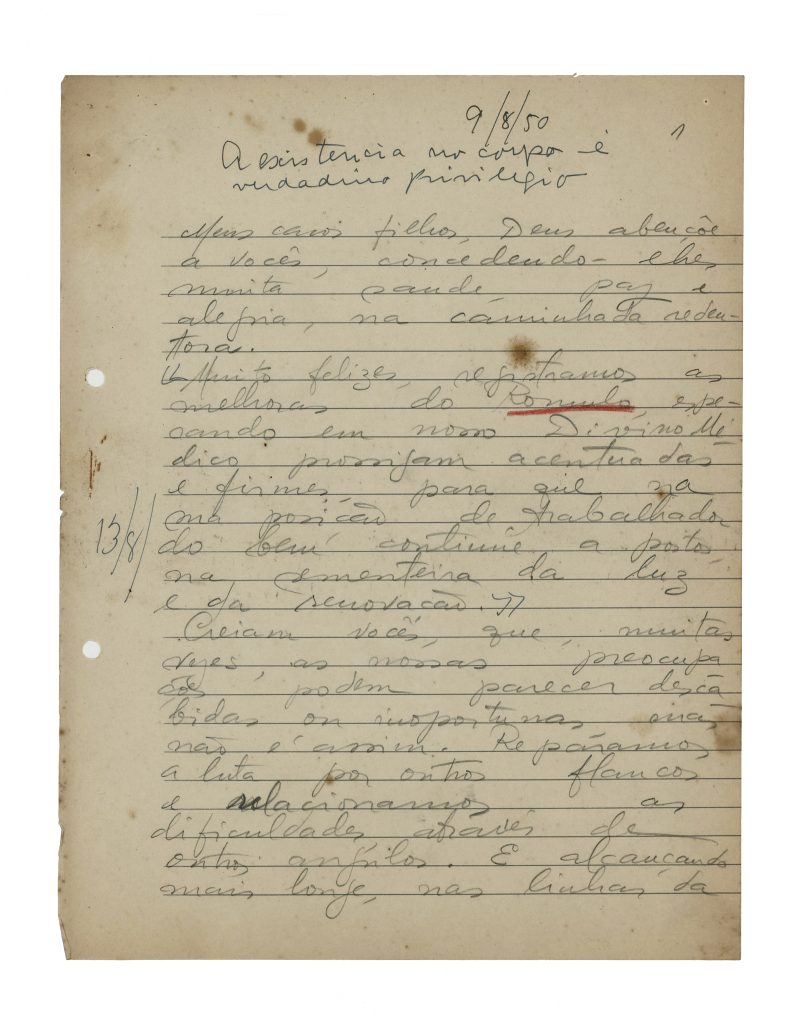 9/8/50
1
A existencia no corpo é
verdadeiro privilegio
Meus caros filhos, Deus abençõe
a vocês, concedendo-lhes
muita saude paz e
alegria, na caminhada reden-
tora.
Muito felizes, registramos as
melhoras do Romulo, espe-
rando em nosso Divino Mé
dico prossigam acentuadas
e firmes, para que na
sua posição de trabalhador
13/8/
do bem continúe a postos
na sementeira da luz
e da renovação.
Creiam vocês, que, muitas
vezes, as nossas preocupa
ções podem parecer descá
bidas ou inoportunas mas,
não é assim. Reparamos
a luta por outros flancos
e relacionamos as
dificuldades através de
outros angulos. E alcançando
mais longe, nas linhas da